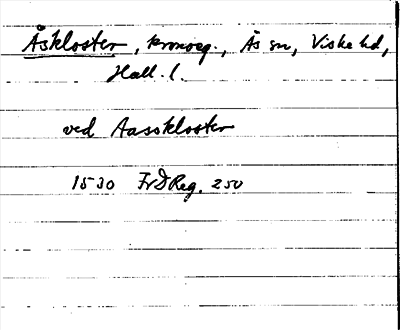 Åskloster, kronoeg., Ås sn, Viske hd,
Hall. l.
ved Aasskloster
1530 FrDReg. 250